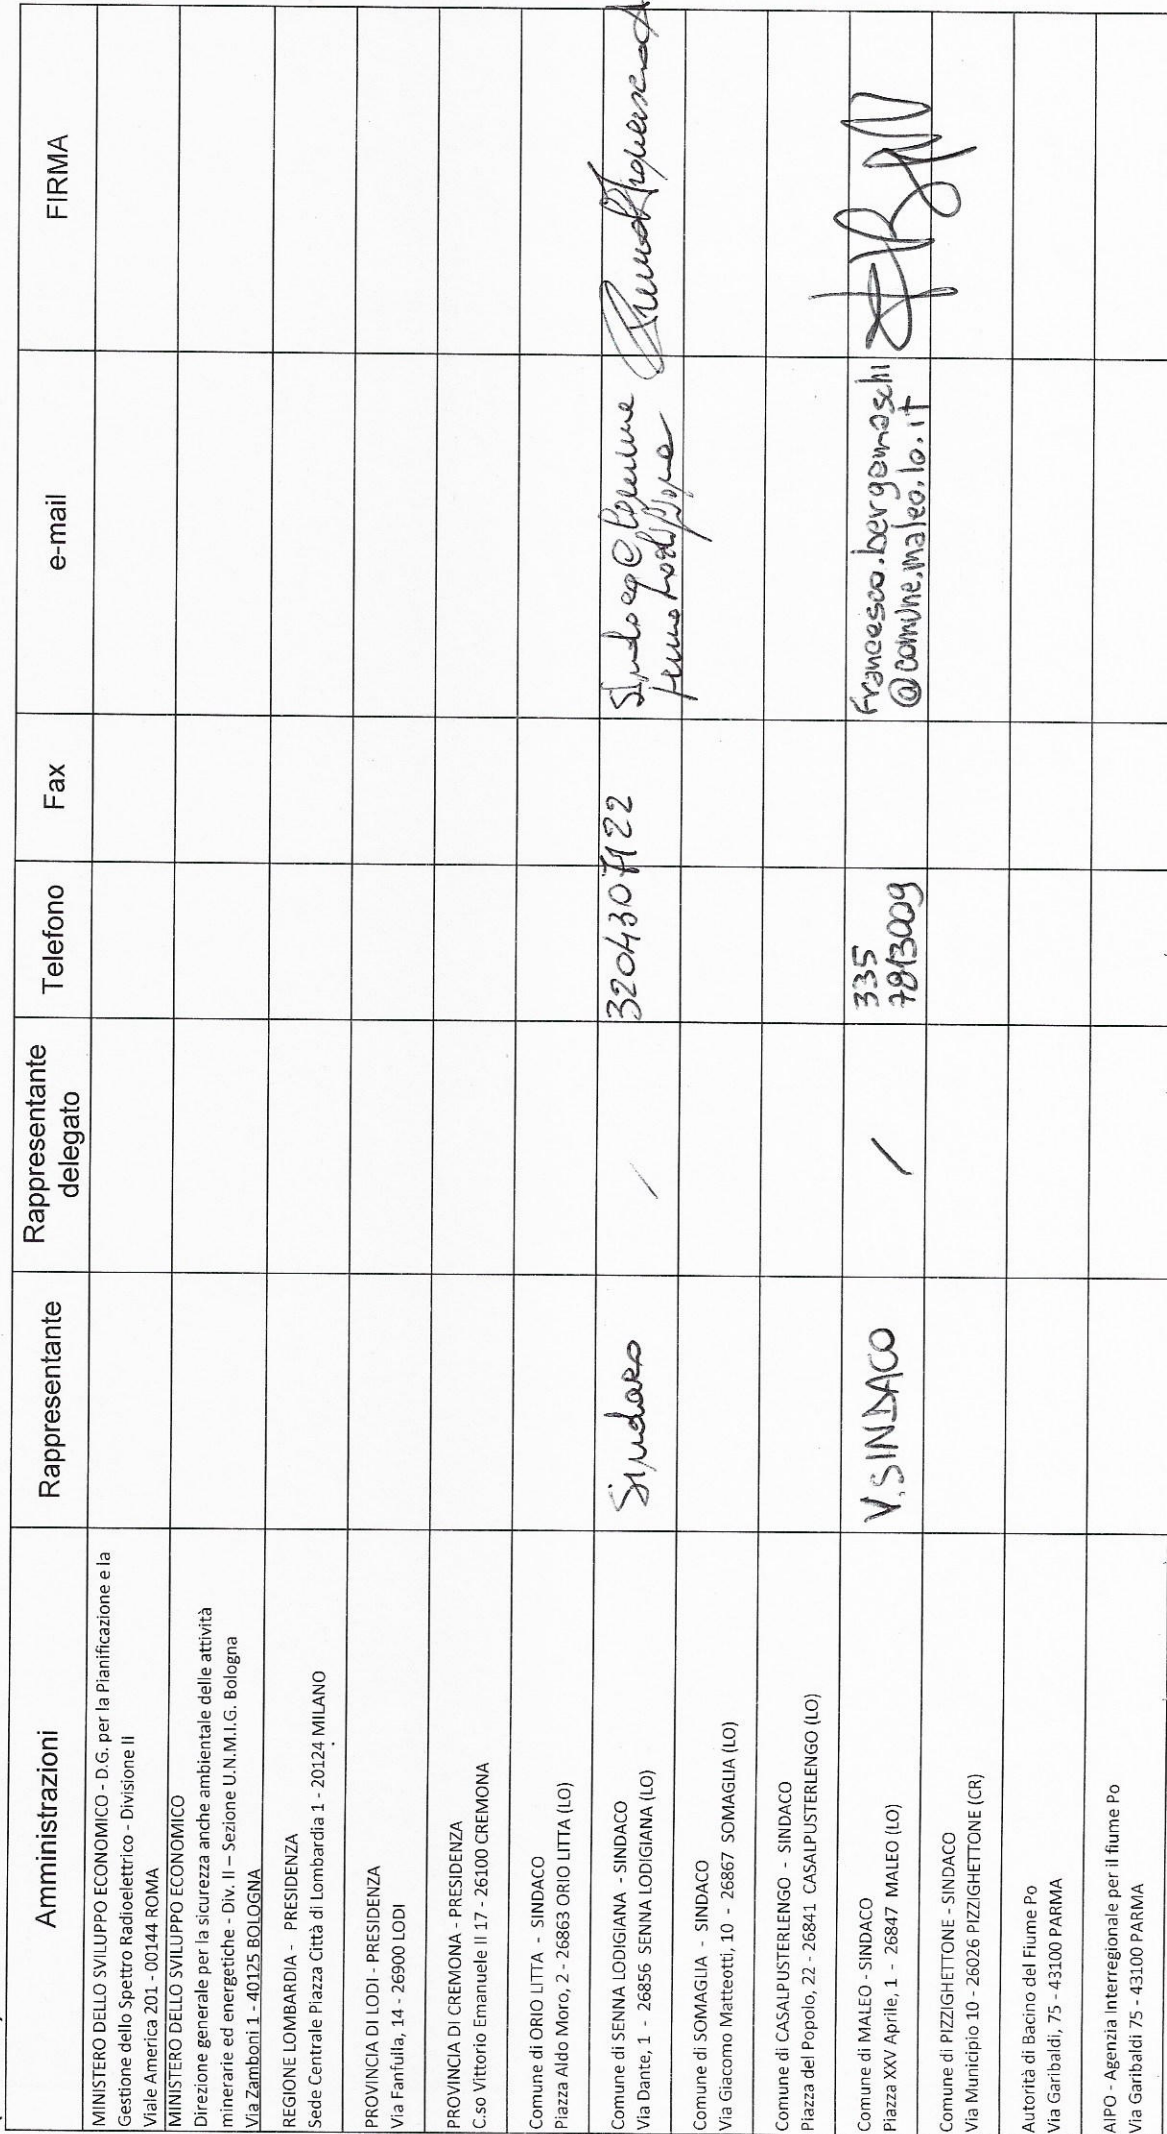 Amministrazioni
Rappresentante
Rappresentante
delegato
Telefono
Fax
e-mail
FIRMA
MINISTERO DELLO SVILUPPO ECONOMICO - D.G. per la Pianificazione e la
Gestione dello Spettro Radioelettrico - Divisione II
Viale America 201 - 00144 ROMA
MINISTERO DELLO SVILUPPO ECONOMICO
Direzione generale per la sicurezza anche ambientale delle attività
minerarie ed energetiche - Div. II – Sezione U.N.M.I.G. Bologna
Via Zamboni 1 - 40125 BOLOGNA
REGIONE LOMBARDIA - PRESIDENZA
Sede Centrale Piazza Città di Lombardia 1 - 20124 MILANO
PROVINCIA DI LODI - PRESIDENZA
Via Fanfulla, 14 - 26900 LODI
PROVINCIA DI CREMONA - PRESIDENZA
C.so Vittorio Emanuele II 17 - 26100 CREMONA
Comune di ORIO LITTA - SINDACO
Piazza Aldo Moro, 2 - 26863 ORIO LITTA (LO)
Comune di SENNA LODIGIANA - SINDACO
Via Dante, 1 - 26856 SENNA LODIGIANA (LO)
Sindaco
/
3204307122
Comune di SOMAGLIA - SINDACO
Via Giacomo Matteotti, 10 - 26867 SOMAGLIA (LO)
Comune di CASALPUSTERLENGO - SINDACO
Piazza del Popolo, 22 - 26841 CASALPUSTERLENGO (LO)
Comune di MALEO - SINDACO
Piazza XXV Aprile, 1 - 26847 MALEO (LO)
V. SINDACO
/
335
7813009
francesco.bergamaschi
@comune.maleo.lo.it
Comune di PIZZIGHETTONE - SINDACO
Via Municipio 10 - 26026 PIZZIGHETTONE (CR)
Autorità di Bacino del Fiume Po
Via Garibaldi, 75 - 43100 PARMA
AIPO - Agenzia Interregionale per il fiume Po
Via Garibaldi 75 - 43100 PARMA